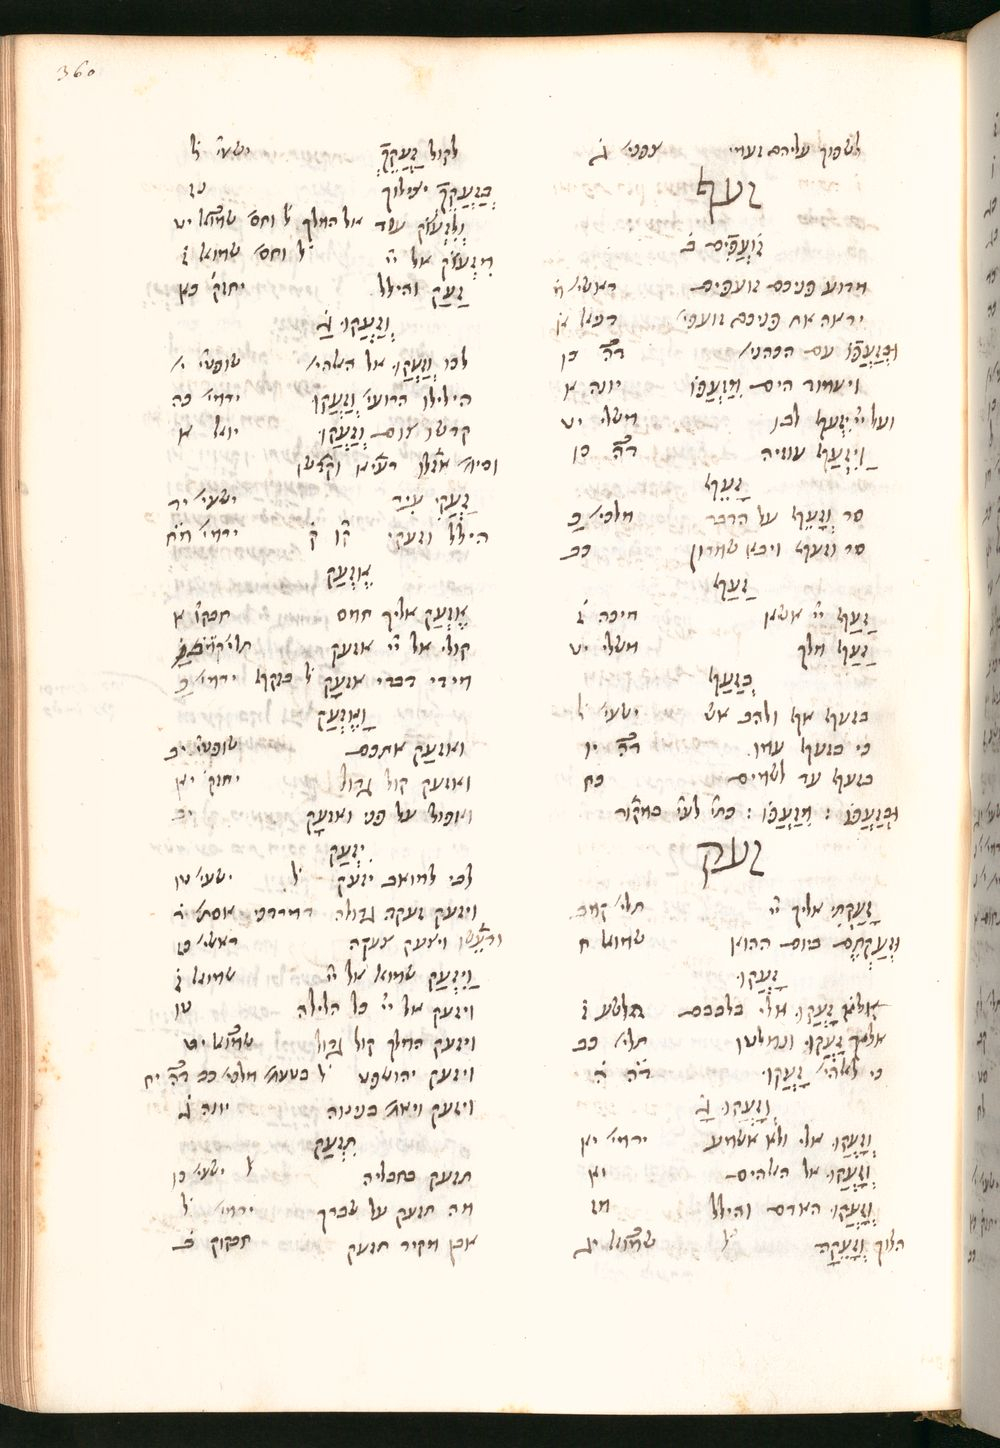 360
לשפוך עליהם זעמי צפני׳ ג̇
זעף
זֹעֲפִים ב̇
מדוע פניכם זועפים ראשי׳ מ
יראה את פניכם זועפי׳ דניאל א
וּבְזַעְפּוֹ עם הכהני׳ ד״ה כו
ויעמוד הים מִזַּעְפּוֹ יונה א
ועל יי׳ יִזְעַף לבו משלי יט
וַיִּזְעַף עוזיה ד״ה כו
זָעֵף
סר וְזָעֵף על הדבר מלכי׳ כ
סר וזעף ויבא שמרון כב
זַעַף
זַעַף יי׳ אשא מיכה ז
זַעַף מלך משלי יט
בְזַעַף
בזעף אף ולהב אש ישעי׳ ל
כי בזעף עמו ד״ה יו
בזעף עד לשמים כח
וּבְזַעְפּוֹ : מִזַּעְפּוֹ : כתי׳ לעי׳ במקור
זעק
זָעַקְתִּי אליך יי׳ תלי׳ קמב
וּזְעַקְתֶּם ביום ההוא שמואל ח
זָעֲקוּ
זָעֲקוּ אלי בלבבם הושע ז
אליך זָעֲקוּ ונמלטו תלי׳ כב
כי לאלהי׳ זָעֲקוּ ד״ה ה
וְזָעֲקוּ ג̇
וְזָעֲקוּ אלי ולא אשמע ירמי׳ יא
וְזָעֲקוּ אל האלהים יא
וְזָעֲקוּ האדם והילל מז
הלוך וְזָעֵקָה ל׳ שמואל יג
לקול זַעֲקֶךָ ישעי׳ ל
בְּזַעֲקֵךְ יצילוך נז
וְלִזְעֹק עוד אל המלך ל׳ וחס׳ שמואל יט
מִזְּעֹק אל יי׳ ל׳ וחס׳ שמואל ז
זְעַק והילל יחזק׳ כא
וְזַעֲקוּ ג̇
לכו וְזַעֲקוּ אל האלהי׳ שופטי׳ י
הילילו הרועי׳ וְזַעֲקוּ ירמי׳ כה
קדשו צום וְזַעֲקוּ יואל א
זַעֲקִי עיר ישעי׳ יד
הילל וזעקי ק׳ ירמי׳ מח
אֶזְעַק
אֶזְעַק אליך חמס חבקו׳ א
קולי אל יי׳ אזעק תלי׳
מידי דברי אזעק ל׳ בזקף ירמי׳ כ
וָאֶזְעַק
ואזעק אתכם שופטי׳ יב
ואזעק קול גדול יחזק׳ יא
ואפול על פני ואזעק
יִזְעַק
לבי למואב יזעק ל׳ ישעי׳ טו
ויזעק זעקה גדולה דמרדכי אסת׳ ד
ודעשו ויצעק צעקה ראשי׳ כז
וַיִּזְעַק שמואל אל יי׳ שמואל ז
ויזעק אל יי׳ כל הלילה טו
ויזעק המלך קול גדול שמואל יט
ויזעק יהושפט ל׳ בטעמ׳ מלכי׳ כב ד״ה יח
ויזעק ויאמ׳ בנינוה יונה ג̇
תִזְעַק
תזעק בחבליה ל׳ ישעי׳ כו
מה תזעק על שברך ירמי׳ ל
אבן מקיר תזעק חבקוק ב